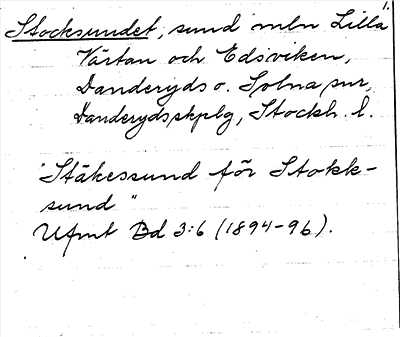 1.
Stocksundet, sund mln Lilla
Värtan och Edsviken,
Danderyds o. Solna snr,
Danderydsskplg, Stockh. l.
"Stäkessund för Stokk-
sund"
Ufmt Bd 3:6 (1894-96).